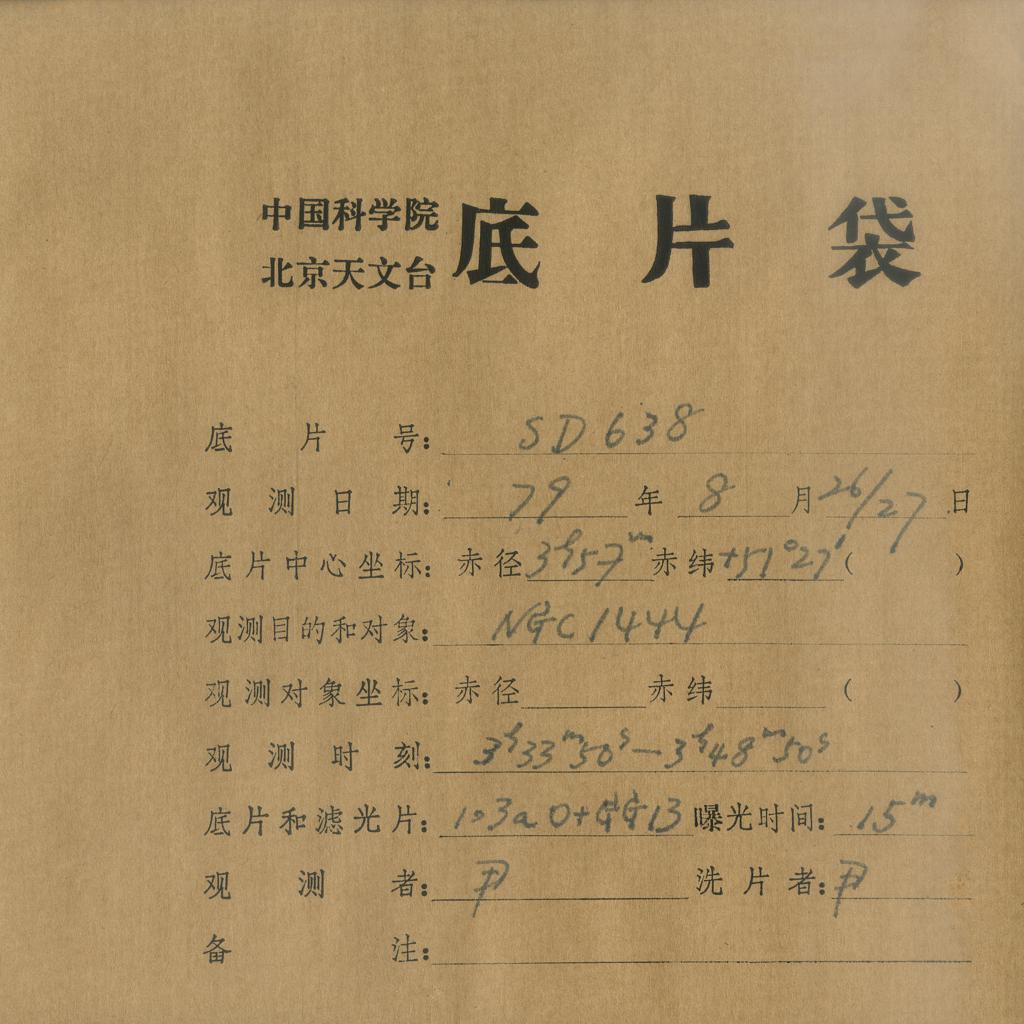 中国科学院
北京天文台
底片袋
底片号: SD638
观测日期: 79年8月26/27日
底片中心坐标: 赤径3ʰ57ᵐ赤纬+51°27′( )
观测目的和对象: NGC1444
观测对象坐标: 赤径 赤纬 ( )
观测时刻: 3ʰ33ᵐ50ˢ—3ʰ48ᵐ50ˢ
底片和滤光片: 103aO+GG13 曝光时间: 15ᵐ
观测者: 尹 洗片者: 尹
备注: